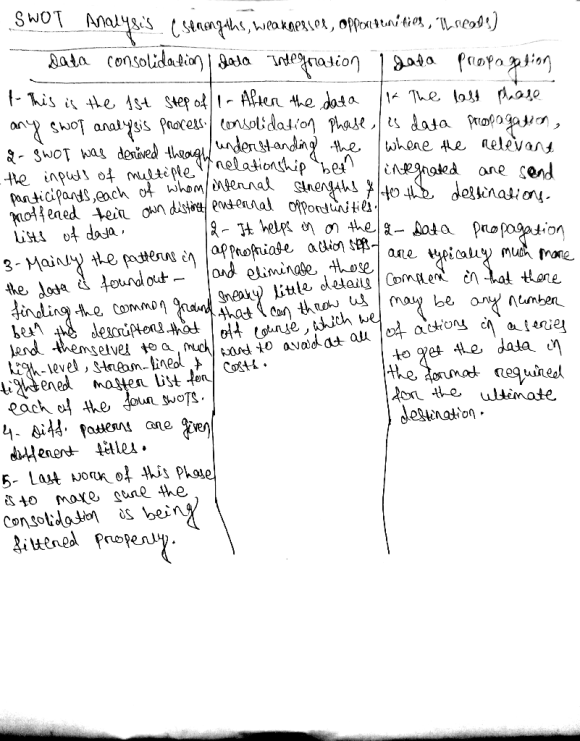 SWOT Analysis (strengths, weaknesses, opportunities, Threads)
Data consolidation
1- This is the 1st step of
any SWOT analysis process.
2- SWOT was derived through
the inputs of multiple
participants, each of whom
proffened their own distinct
lists of data.
3- Mainly the patterns in
the data is foundout -
finding the common ground
betn the descriptors that
lend themselves to a much
high-level, stream-lined &
tightened master list for
each of the four SWOTS.
4- Diff. patterns are given
different titles.
5- Last work of this Phase
is to make sure the
consolidation is being
filtered properly.
Data Integration
1- After the data
consolidation phase,
understanding the
relationship betn
internal strengths &
external opportunities.
2- It helps in on the
appropriate action steps-
and eliminate those
sneaky little details
that can throw us
off course, which we
want to avoid at all
costs.
Data Propagation
1- The last phase
is data propagation,
where the relevant
integrated are send
to the destinations.
2- Data propagation
are typically much more
complex in that there
may be any number
of actions in a series
to get the data in
the format required
for the ultimate
destination.